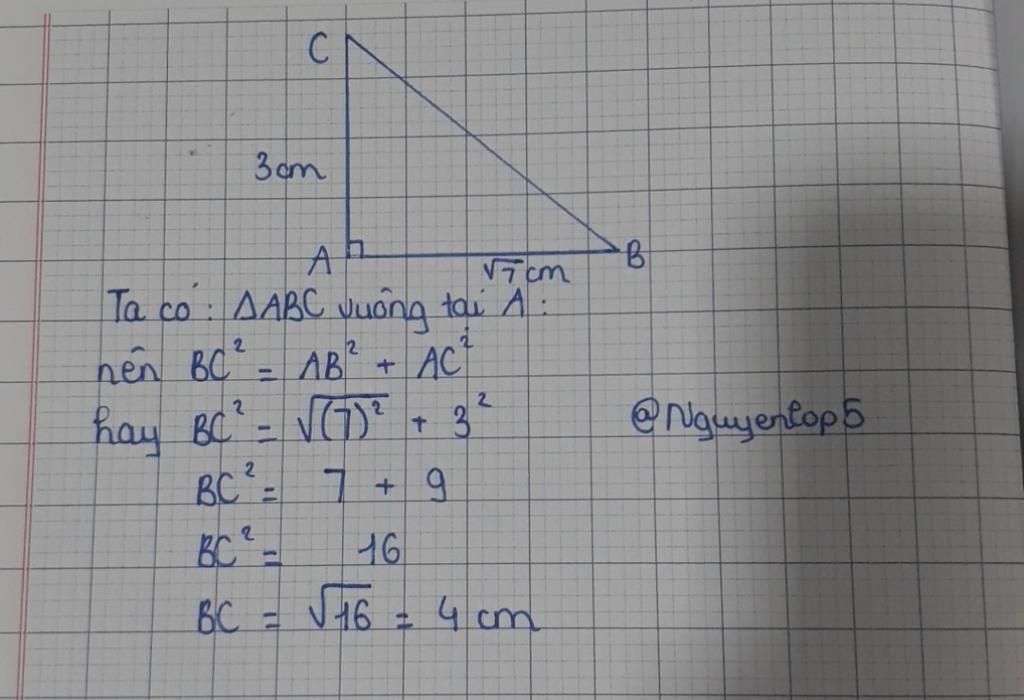 C
3cm
A
B
√7 cm
Ta có: ΔABC vuông tại A:
nên BC² = AB² + AC²
hay BC² = √(7)² + 3²
@Nguyenlop5
BC² = 7 + 9
BC² = 16
BC = √16 = 4 cm